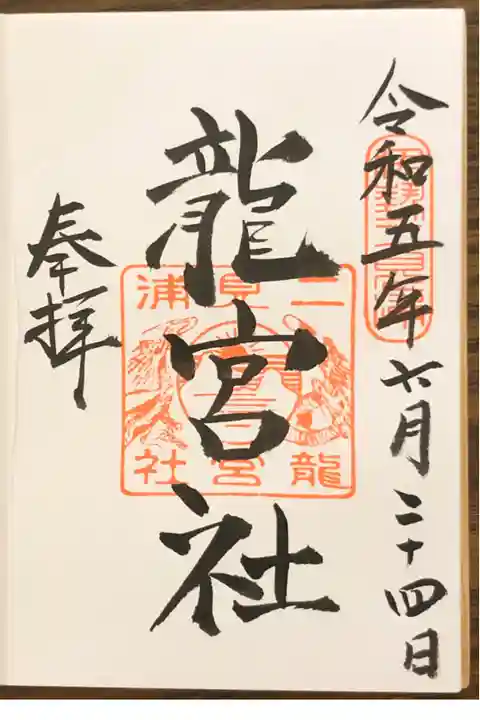 令和五年六月二十四日
龍宮社
二見浦
龍宮社
奉拝